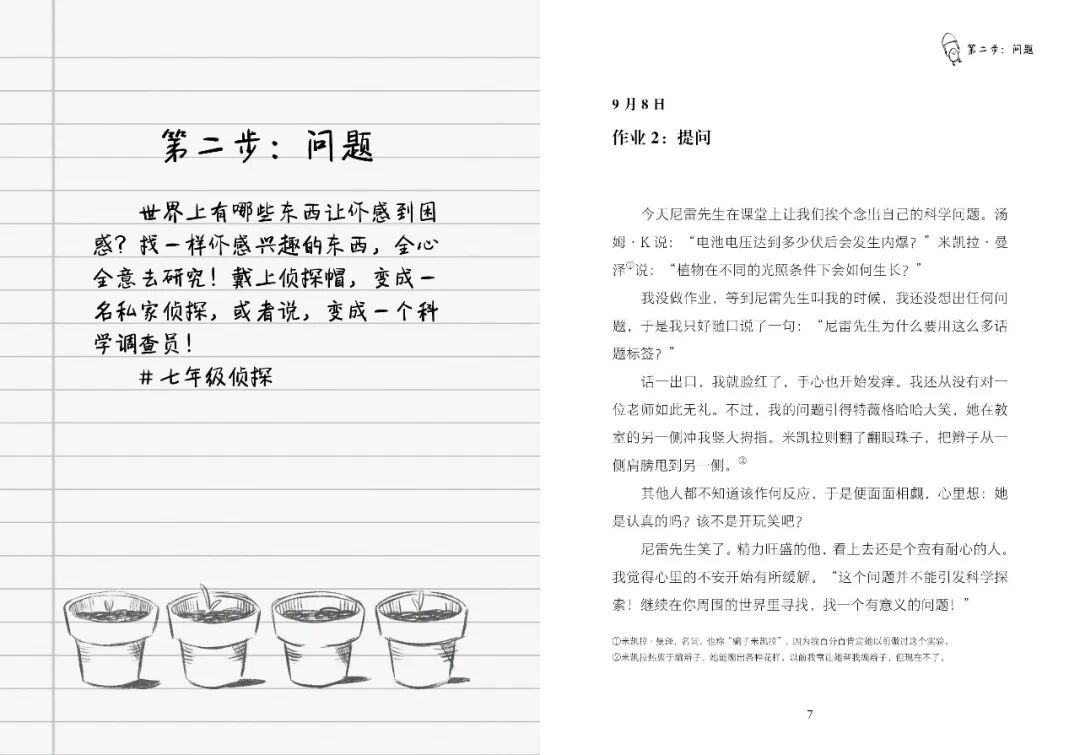 第二步：问题
世界上有哪些东西让你感到困
惑？找一样你感兴趣的东西，全心
全意去研究！戴上侦探帽，变成一
名私家侦探，或者说，变成一个科
学调查员！
#七年级侦探
第二步：问题
9月8日
作业2：提问
今天尼雷先生在课堂上让我们挨个念出自己的科学问题。汤
姆·K说：“电池电压达到多少伏后会发生内爆？”米凯拉·曼
泽①说：“植物在不同的光照条件下会如何生长？”
我没做作业，等到尼雷先生叫我的时候，我还没想出任何问
题，于是我只好随口说了一句：“尼雷先生为什么要用这么多话
题标签？”
话一出口，我就脸红了，手心也开始发痒。我还从没有对一
位老师如此无礼。不过，我的问题引得特薇格哈哈大笑，她在教
室的另一侧冲我竖大拇指。米凯拉则翻了翻眼珠子，把辫子从一
侧肩膀甩到另一侧。②
其他人都不知道该作何反应，于是便面面相觑，心里想：她
是认真的吗？该不是开玩笑吧？
尼雷先生笑了。精力旺盛的他，看上去还是个蛮有耐心的人。
我觉得心里的不安开始有所缓解。“这个问题并不能引发科学探
索！继续在你周围的世界里寻找，找一个有意义的问题！”
①米凯拉·曼泽，名词，也称“骗子米凯拉”，因为我百分百肯定她以前做过这个实验。
②米凯拉热衷于编辫子，她能编出各种花样。以前我常让她帮我编辫子，但现在不了。
7